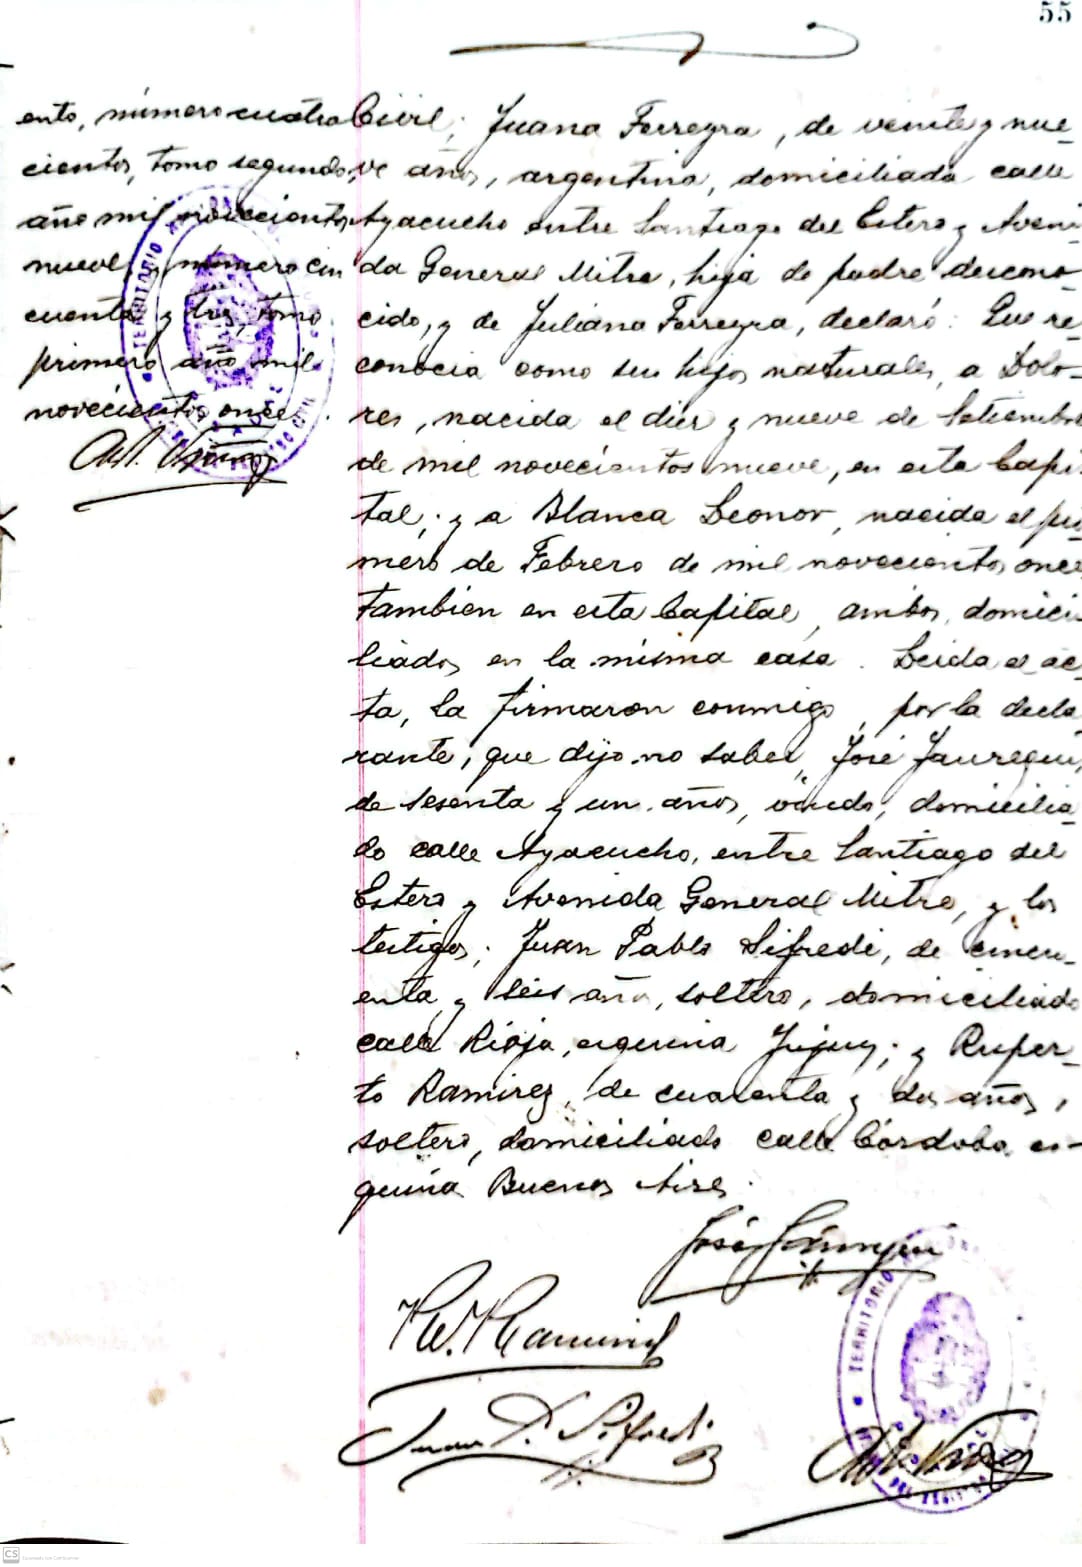 55
ento, número cuatro
cientos, tomo segundo,
año mil novecientos
nueve, y número cin
cuenta y tres, tomo
primero año mil
novecientos once.
Civil; Juana Ferreyra, de veinte y nue-
ve años, argentina, domiciliada calle
Ayacucho entre Santiago del Estero y Aveni-
da General Mitre, hija de padre descono-
cido, y de Juliana Ferreyra, declaró: Que re-
conocia como sus hijos naturales, a Dolo-
res, nacida el diez y nueve de Setiembre
de mil novecientos nueve, en esta Capi-
tal; y a Blanca Leonor, nacida el pri-
mero de Febrero de mil novecientos once
tambien en esta Capital, ambos domici-
liados en la misma casa. Leida el ac-
ta, la firmaron conmigo, por la decla-
rante, que dijo no saber, José Jauregui,
de sesenta y un años, viudo, domicilia-
do calle Ayacucho, entre Santiago del
Estero y Avenida General Mitre, y los
testigos; Juan Pablo Sifredi, de cincu-
enta y seis años, soltero, domiciliado
calle Rioja, esquina Jujuy; y Ruper-
to Ramirez, de cuarenta y dos años,
soltero, domiciliado calle Córdoba es-
quina Buenos Aires.
José Jauregui
R. Ramirez
Juan P. Sifredi
TERRITORIO
TERRITORIO
CS